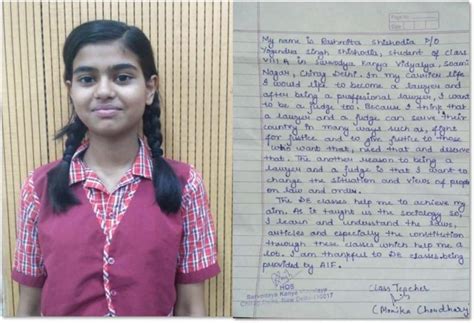 My name is Rashmita Shishodia D/O
Yogendra Singh Shishodia, student of class
VIII A in Sarvodya Kanya Vidyalya, Soami
Nagar, Chirag Delhi. In my carrier life
I would like to become a lawyer and
after being a proffesional lawyer, I want
to be a judge too. Because I think that
a lawyer and a judge can serve their
country in many ways such as, fight
for justice and to give justice to those
who want that, need that and deserve
that. The another reason to being a
lawyer and a judge is that I want to
change the situation and views of people
on law and order.
The DE classes help me to achieve my
aim. As is taught us the sociology so,
I learn and understand the laws,
articles and especially the constitution
through these classes which help me a
lot. I am thankful to DE classes being
provided by AIF.
HOS
Sarvodaya Kanya Vidyalaya
New Delhi 110017
Class Teacher
(Monika Choudhary